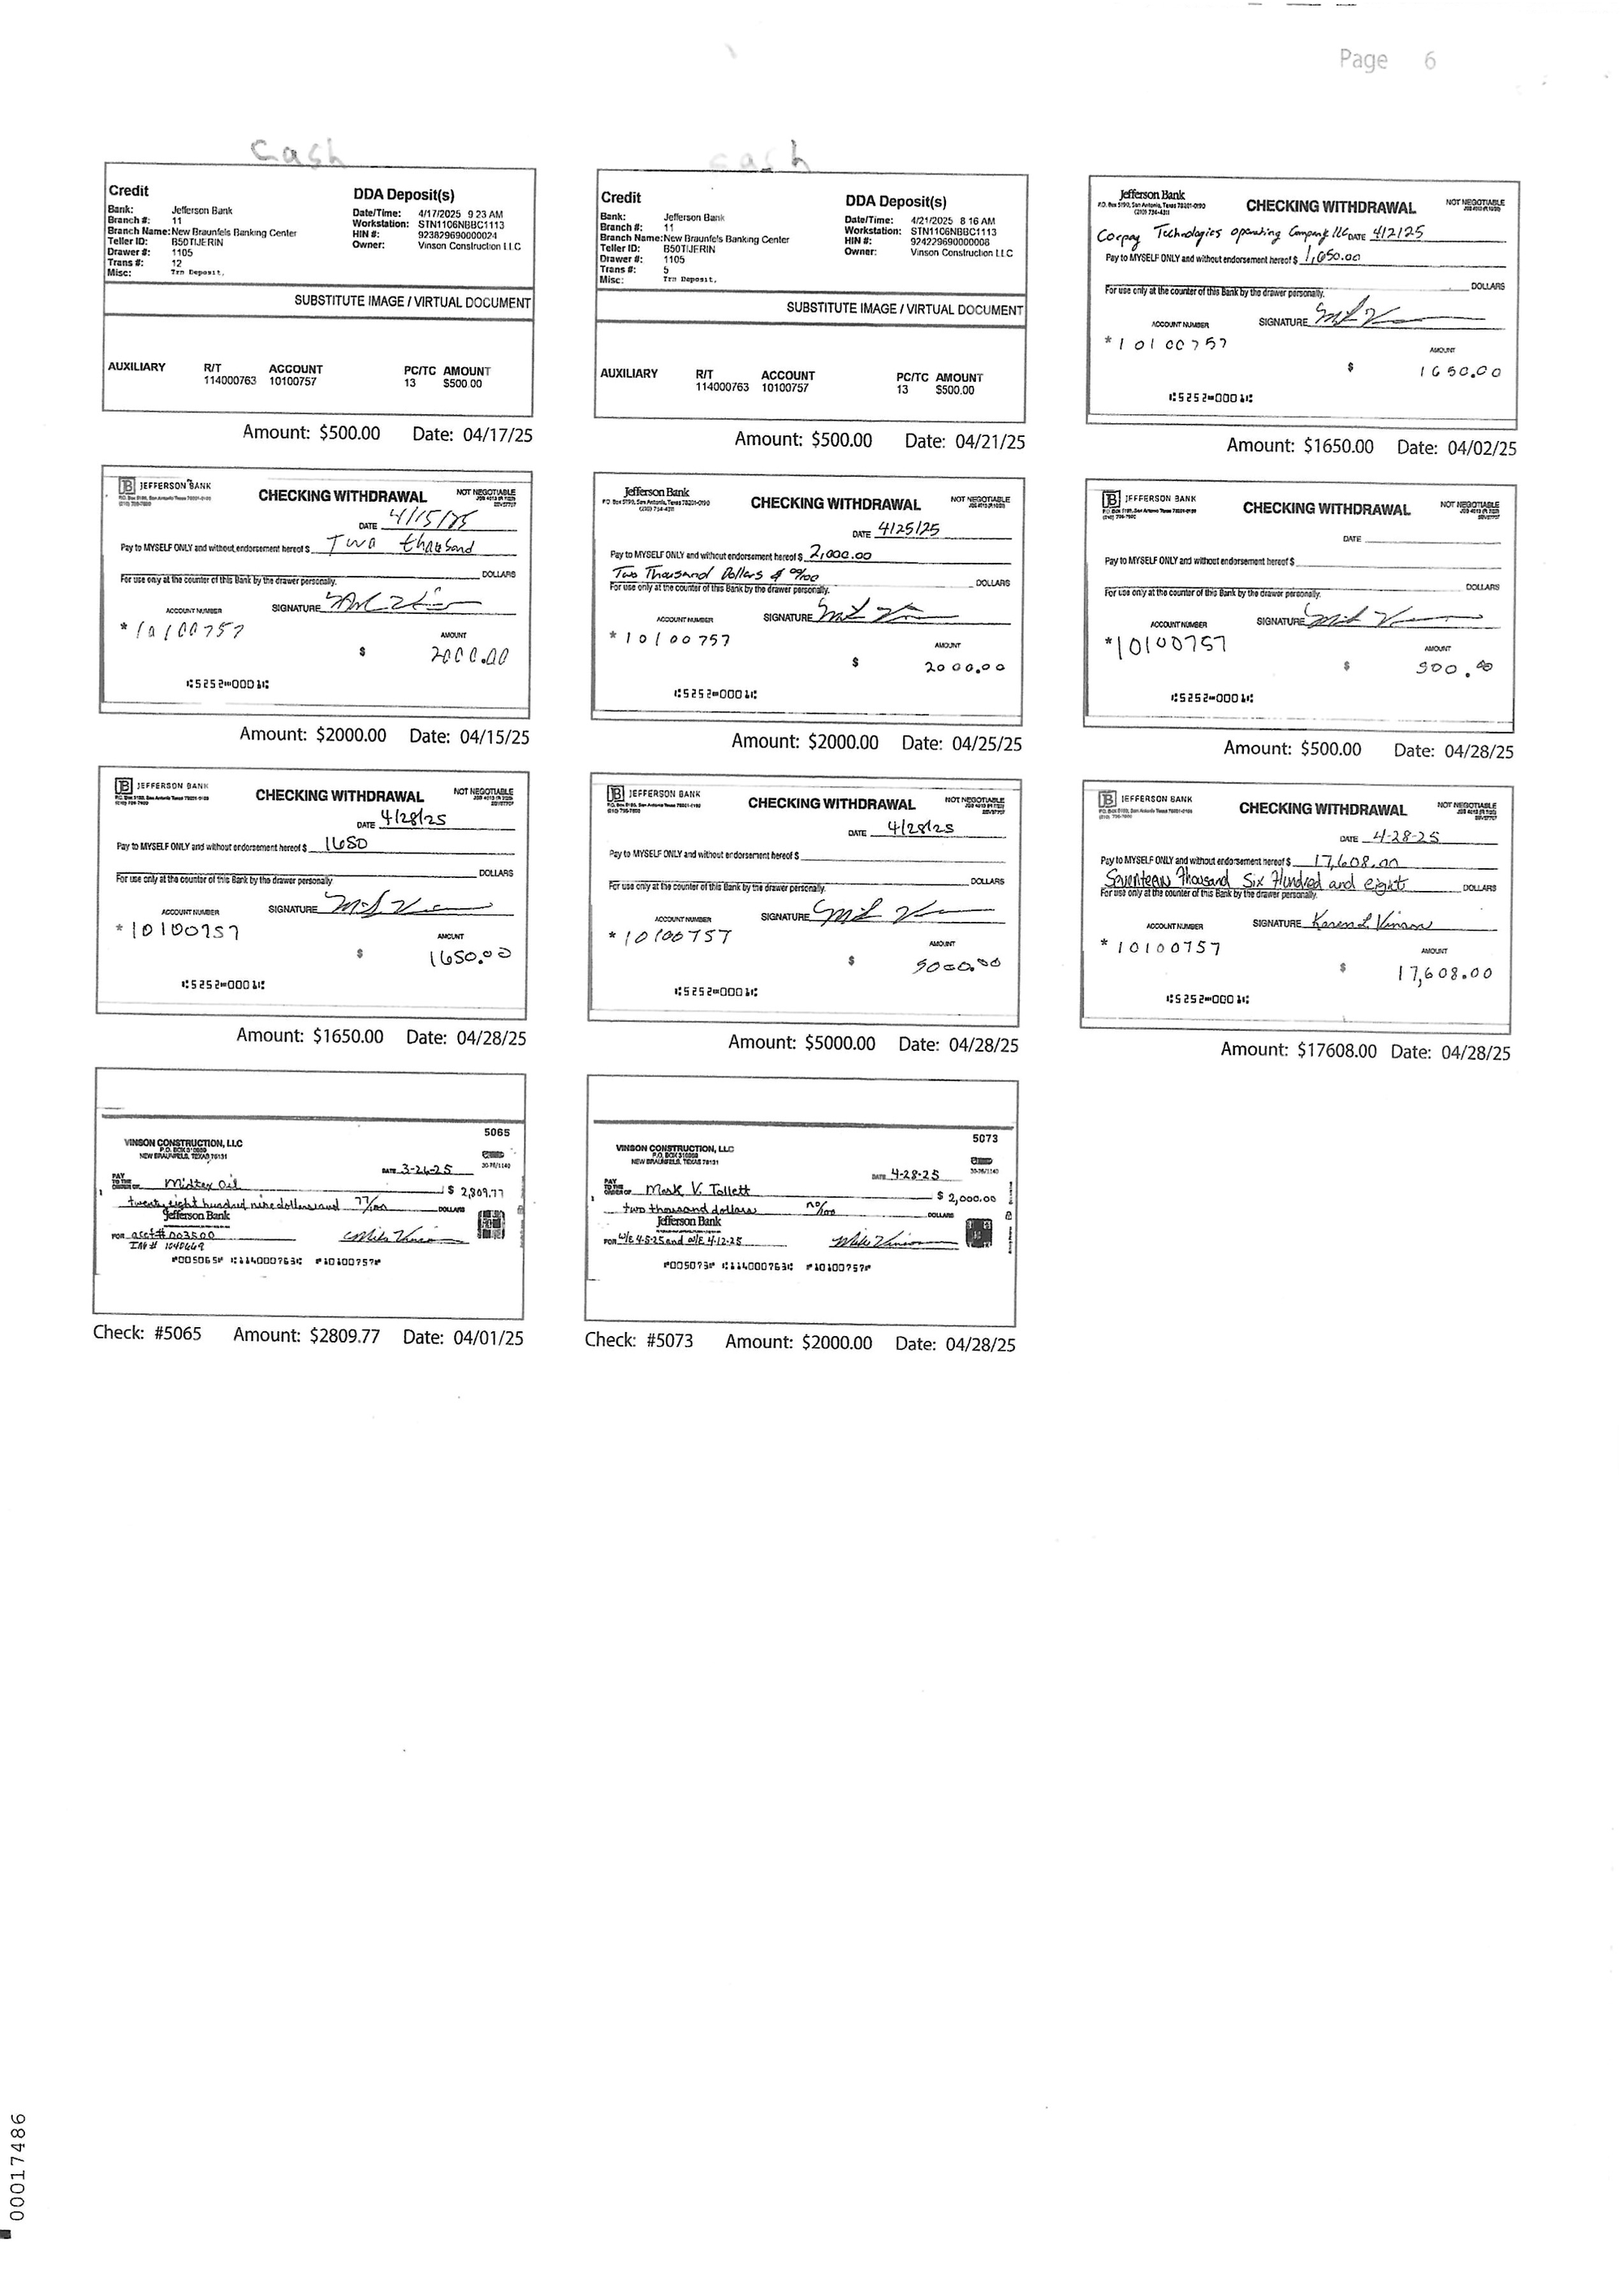 Page 6
Cash
Credit
DDA Deposit(s)
Bank: Jefferson Bank
Branch #: 11
Branch Name: New Braunfels Banking Center
Teller ID: B50TIJERIN
Drawer #: 1105
Trans #: 12
Misc: Trn Deposit.
Date/Time: 4/17/2025 9 23 AM
Workstation: STN1106NBBC1113
HIN #: 923829690000024
Owner: Vinson Construction LLC
SUBSTITUTE IMAGE / VIRTUAL DOCUMENT
AUXILIARY R/T ACCOUNT PC/TC AMOUNT
114000763 10100757 13 $500.00
Amount: $500.00 Date: 04/17/25
cash
Credit
DDA Deposit(s)
Bank: Jefferson Bank
Branch #: 11
Branch Name: New Braunfels Banking Center
Teller ID: B50TIJERIN
Drawer #: 1105
Trans #: 5
Misc: Trn Deposit.
Date/Time: 4/21/2025 8 16 AM
Workstation: STN1106NBBC1113
HIN #: 924229690000008
Owner: Vinson Construction LLC
SUBSTITUTE IMAGE / VIRTUAL DOCUMENT
AUXILIARY R/T ACCOUNT PC/TC AMOUNT
114000763 10100757 13 $500.00
Amount: $500.00 Date: 04/21/25
Jefferson Bank
P.O. Box 5190, San Antonio, Texas 78201-0190
(210) 734-4311
CHECKING WITHDRAWAL
NOT NEGOTIABLE
Corpay Technologies operating Company llc DATE 4/2/25
Pay to MYSELF ONLY and without endorsement hereof $ 1,650.00
DOLLARS
For use only at the counter of this Bank by the drawer personally.
ACCOUNT NUMBER SIGNATURE
*10100757
AMOUNT
$ 1650.00
⑆5252⑉0001⑆
Amount: $1650.00 Date: 04/02/25
JEFFERSON BANK
CHECKING WITHDRAWAL
NOT NEGOTIABLE
DATE 4/15/25
Pay to MYSELF ONLY and without endorsement hereof $ Two thousand
DOLLARS
For use only at the counter of this Bank by the drawer personally.
ACCOUNT NUMBER SIGNATURE
*10100757
AMOUNT
$ 2000.00
⑆5252⑉0001⑆
Amount: $2000.00 Date: 04/15/25
Jefferson Bank
P.O. Box 5190, San Antonio, Texas 78201-0190
(210) 734-4311
CHECKING WITHDRAWAL
NOT NEGOTIABLE
DATE 4/25/25
Pay to MYSELF ONLY and without endorsement hereof $ 2,000.00
Two Thousand Dollars & 00/100 DOLLARS
For use only at the counter of this Bank by the drawer personally.
ACCOUNT NUMBER SIGNATURE
*10100757
AMOUNT
$ 2000.00
⑆5252⑉0001⑆
Amount: $2000.00 Date: 04/25/25
JEFFERSON BANK
CHECKING WITHDRAWAL
NOT NEGOTIABLE
DATE
Pay to MYSELF ONLY and without endorsement hereof $
DOLLARS
For use only at the counter of this Bank by the drawer personally.
ACCOUNT NUMBER SIGNATURE
*10100757
AMOUNT
$ 500.00
⑆5252⑉0001⑆
Amount: $500.00 Date: 04/28/25
JEFFERSON BANK
CHECKING WITHDRAWAL
NOT NEGOTIABLE
DATE 4/28/25
Pay to MYSELF ONLY and without endorsement hereof $ 1650
DOLLARS
For use only at the counter of this Bank by the drawer personally
ACCOUNT NUMBER SIGNATURE
*10100757
AMOUNT
$ 1650.00
⑆5252⑉0001⑆
Amount: $1650.00 Date: 04/28/25
JEFFERSON BANK
CHECKING WITHDRAWAL
NOT NEGOTIABLE
DATE 4/28/25
Pay to MYSELF ONLY and without endorsement hereof $
DOLLARS
For use only at the counter of this Bank by the drawer personally.
ACCOUNT NUMBER SIGNATURE
*10100757
AMOUNT
$ 5000.00
⑆5252⑉0001⑆
Amount: $5000.00 Date: 04/28/25
JEFFERSON BANK
CHECKING WITHDRAWAL
NOT NEGOTIABLE
DATE 4-28-25
Pay to MYSELF ONLY and without endorsement hereof $ 17,608.00
Seventeen Thousand Six Hundred and eight DOLLARS
For use only at the counter of this Bank by the drawer personally.
ACCOUNT NUMBER SIGNATURE Karen L Vinson
*10100757
AMOUNT
$ 17,608.00
⑆5252⑉0001⑆
Amount: $17608.00 Date: 04/28/25
5065
VINSON CONSTRUCTION, LLC
P.O. BOX 310959
NEW BRAUNFELS, TEXAS 78131
DATE 3-26-25
30-76/1140
PAY TO THE ORDER OF Midtex Oil $ 2,809.77
twenty eight hundred nine dollars and 77/100 DOLLARS
Jefferson Bank
FOR acct# 003500 Mike Vinson
INV# 1040669
⑈005065⑈ ⑆114000763⑆ ⑈10100757⑈
Check: #5065 Amount: $2809.77 Date: 04/01/25
5073
VINSON CONSTRUCTION, LLC
P.O. BOX 310959
NEW BRAUNFELS, TEXAS 78131
DATE 4-28-25
30-76/1140
PAY TO THE ORDER OF Mark V. Tollett $ 2,000.00
two thousand dollars no/100 DOLLARS
Jefferson Bank
FOR W/E 4-5-25 and W/E 4-12-25 Mike Vinson
⑈005073⑈ ⑆114000763⑆ ⑈10100757⑈
Check: #5073 Amount: $2000.00 Date: 04/28/25
00017486